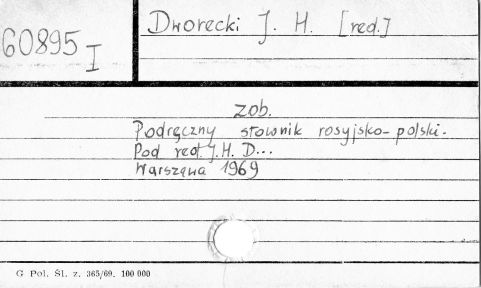 Dworecki J. H. [red.]
60895
I
zob.
Podręczny słownik rosyjsko-polski.
Pod red. J. H. D...
Warszawa 1969
G Pol. Śl. z. 365/69. 100 000